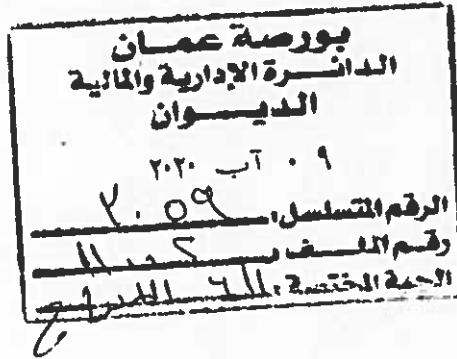 بورصة عمـان
الدائـــرة الإدارية والمالية
الديـــوان
٠٩ آب ٢٠٢٠
الرقم المتسلسل: ٣٠٥٩
رقـم الملـــف:
الجهة المختصة: